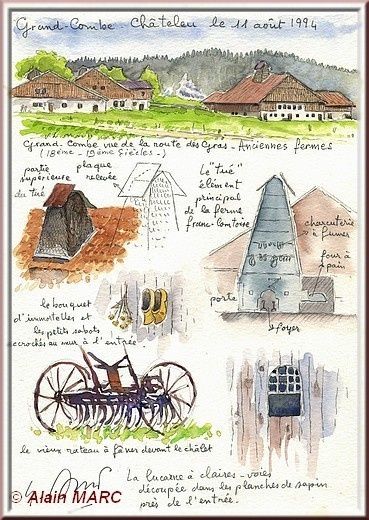 Grand-Combe - Châteleu le 11 août 1994
Grand-Combe vue de la route des Gras - Anciennes fermes
(18ème - 19ème siècles -)
partie supérieure du tué
plaque relevée
Le "tué"
élément
principal
de la ferme
franc-comtoise
charcuterie
à fumer
four à
pain
porte
le foyer
le bouquet
d'immortelles et
les petits sabots
accrochés au mur à l'entrée
le vieux rateau à faner devant le châlet
La lucarne à claires-voies
découpée dans les planches de sapin
près de l'entrée.
© Alain MARC